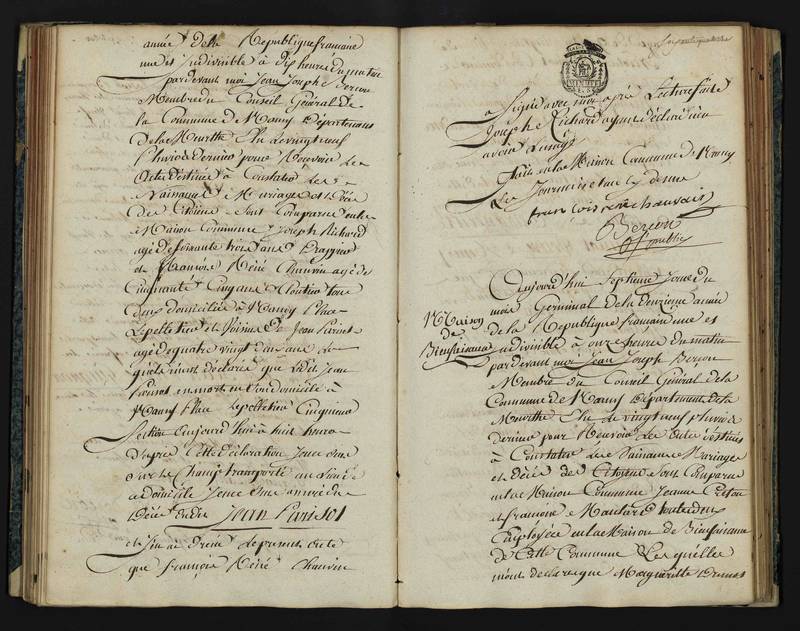 année de la République francaine
une et indivisible à dix heures du matin
pardevant moi Jean Joseph Berson
Membre du Conseil Général De
la Commune de Nancy Département
De la Meurthe Elu le vingt neuf
Pluviose dernier pour Recevoir les
Actes Destinés à Constater les
Naissances Mariages et Décès
Des Citoiens Sont Comparus en la
Maison Commune Joseph Richard
agé de soixante trois ans
et François Réné Chauvin agé de
Cinquante Cinq ans
Deux domiciliés à Nancy Place
Lepelletier et voisins De Jean Parisot
agé de quatre vingt
quels m'ont déclaré que ledit Jean
Parisot est mort en son domicile à
Nancy Place Lepelletier Cinquieme
Section aujourd'hui à huit heures
D'après Cette Déclaration Je me suis
sur le Champ transporté au lieu de
ce domicile Je me suis assuré du
Décès dudit Jean Parisot
et J'en ai Dressé le présent acte
que François Réné Chauvin
a Signé avec moi après Lecture faite
Joseph Richard ayant déclaré n'en
avoir l'usage
Fait en la Maison Commune de Nancy
Les Jour mois et an cy dessus
francois rene chauvain
Berson
Off public
Maison
de
Bienfaisance
Aujourd'hui Septieme Jour du
mois Germinal de la Deuxieme année
de la République francaine une et
indivisible à onze heures du matin
pardevant moi Jean Joseph Berson
Membre du Conseil Général de la
Commune de Nancy Département de la
Meurthe Elu le vingt neuf pluviose
dernier pour Recevoir les actes destinés
à Constater les Naissances Mariages
et Décès des Citoyens Sont Comparus
en la Maison Commune Jeanne
et francoise toutes deux
Employées en la Maison de Bienfaisance
de Cette Commune Lesquelles
m'ont déclaré que Margueritte